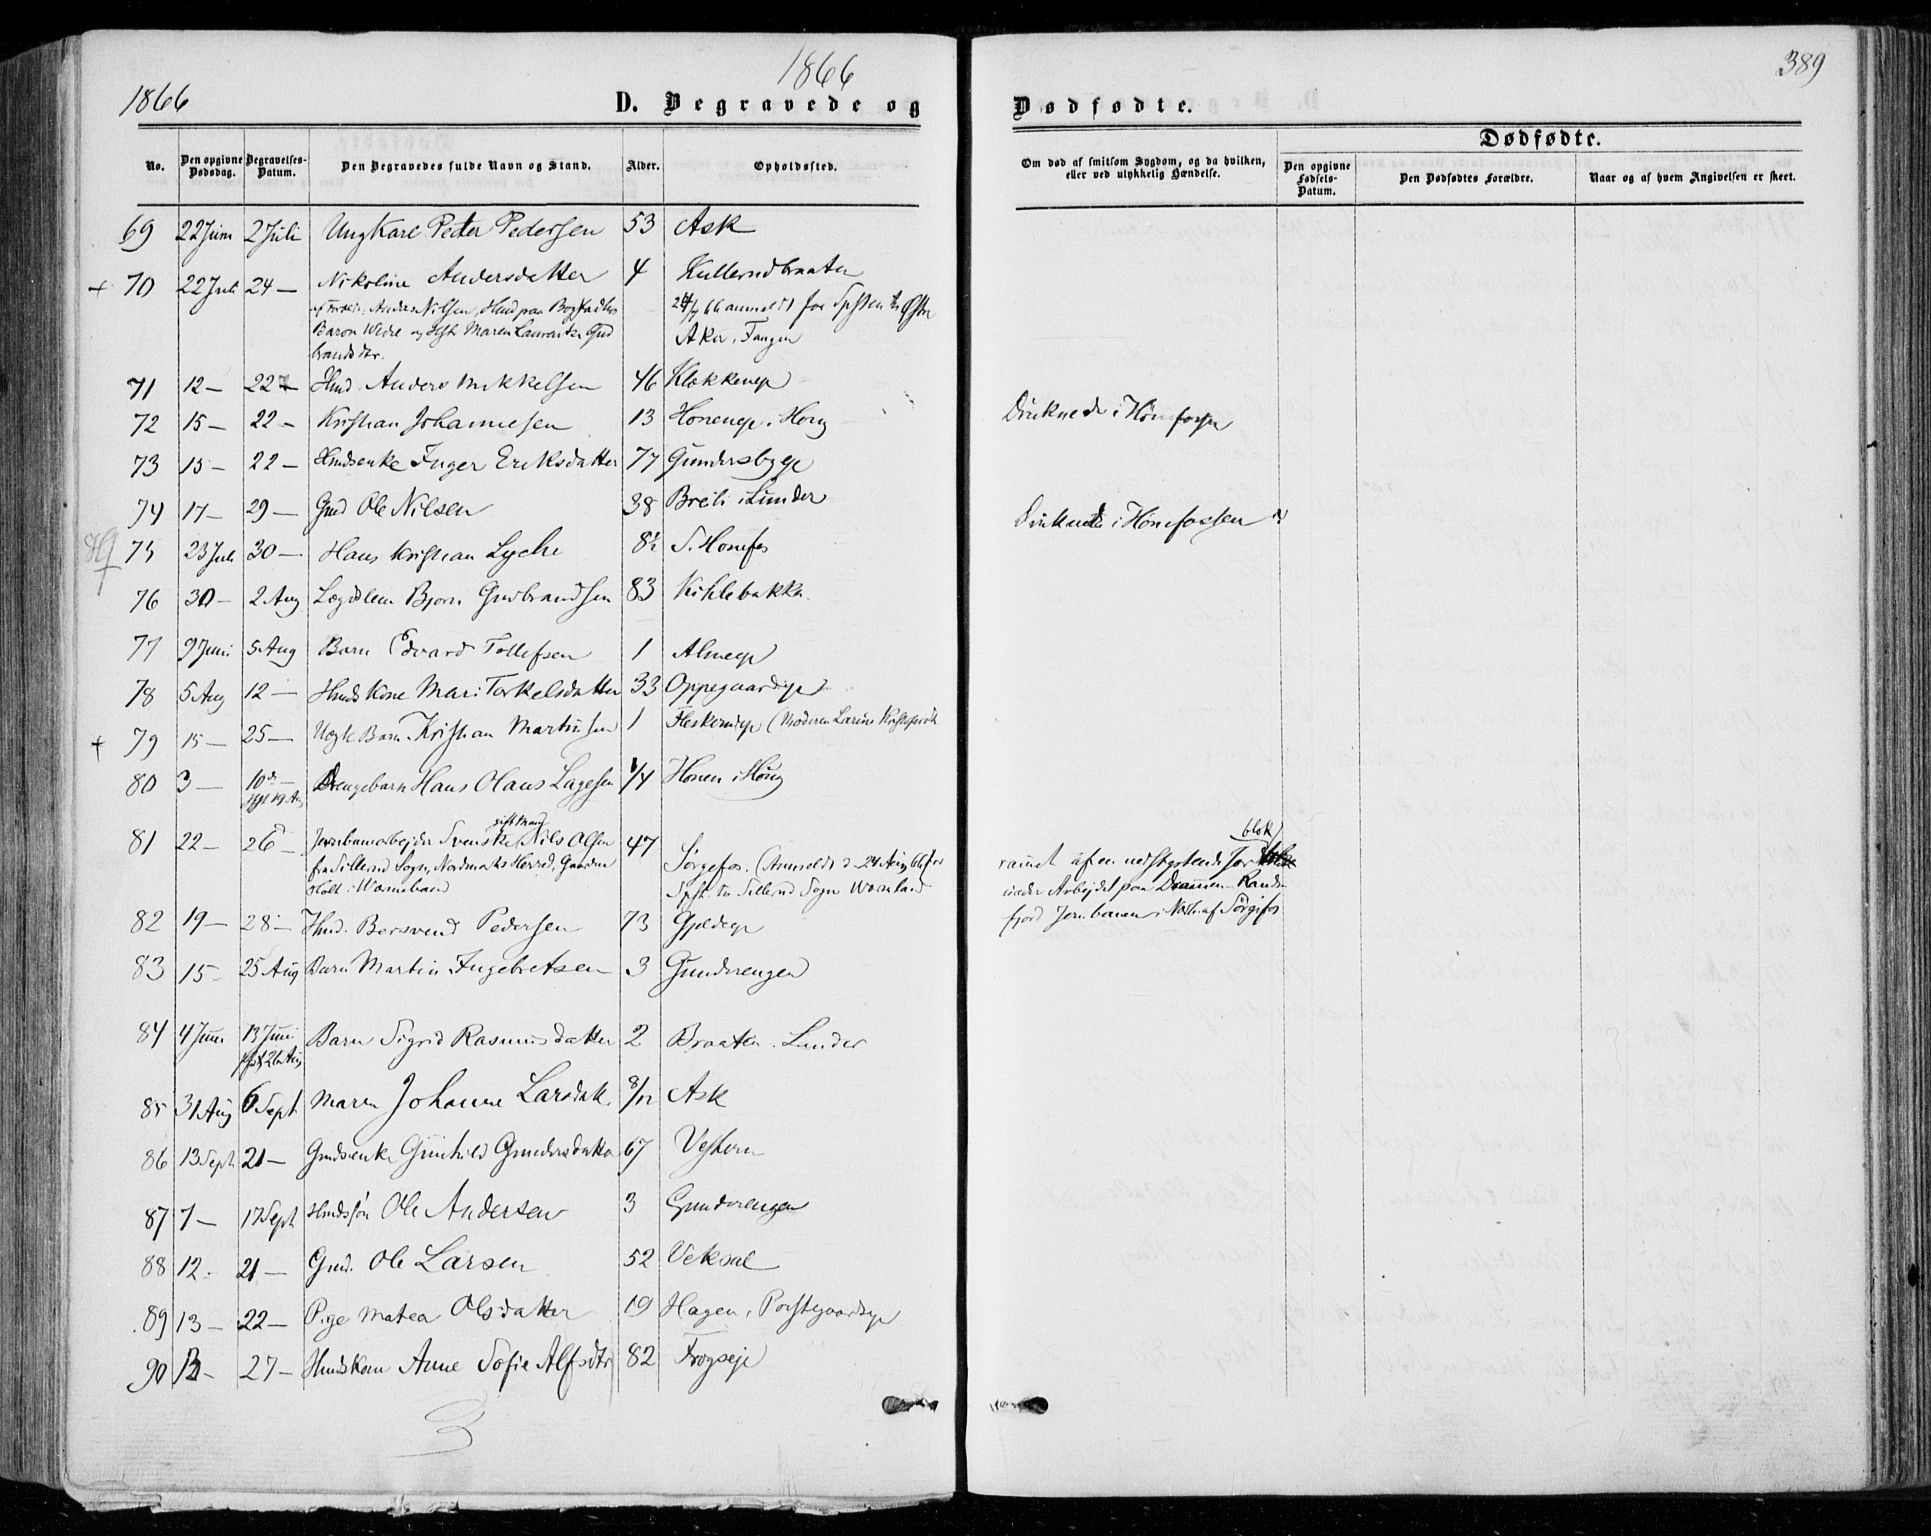 1866
1866
389
D. Begravede og
Dødfødte.
Dødfødte.
No.
Den opgivne Dødsdag.
Begravelses-Datum.
Den Begravedes fulde Navn og Stand.
Alder.
Opholdssted.
Om død af smitsom Sygdom, og da hvilken, eller ved ulykkelig Hændelse.
Den opgivne Fødsels-Datum.
Den Dødfødtes Forældre.
Naar og af hvem Angivelsen er skeet.
69 22 Juni 2 Juli Ungkarl Peter Pedersen 53 Ask
+ 70 22 Juli 24 — Nikoline Andersdatter 4 Kullerudbraaten
Anders Nilsen, Hmd paa
Baron Wedel og Hst Maren Laurantse Gud
brandsdtr.
Aker, Tangen
71 12 — 22 — Hmd. Anders Mikkelsen 46 Klokkereje
72 15 — 22 — Kristian Johannesen 13 Honeneje i Hong Druknede i Hønefossen
73 15 — 22 — Hmdsenke Inger Eriksdatter 77 Gundersbyeje
74 17 — 29 — Gmd Ole Nilsen 38 Breili i Lunder Druknede i Hønefossen
75 23 Juli 30 — Hans Kristian Lyche 8½ S. Honefos
76 30 — 2 Aug Lægdslem Bjørn Gudbrandsen 83 Kihlebakka
77 9 Juni 5 Aug Barn Edvard Tollefsen 1 Almeje
78 5 Aug 12 — Hmds Kone Mari Torkelsdatter 33 Oppegaardseje
+ 79 15 — 25 — Uægte Barn Kristian Martinsen 1 Fleskerudeje (Moderen Larine
80 3 — 10 — Drengebarn Hans Olaus Lagesen 1/4 Honen i Hong
19 Aug
81 22 — 26 — Jernbanearbejder Svenske gift Mand Nils Olsen 47
fra Sillerud Sogn, Nordmarks Herred, Gaarden
Holt i Wærmeland
Sørgefos. (Anmeldt d. 24 Aug 66 for
Sillerud Sogn Wærmland
ramt af en nedstyrtende Jordblok
under Arbejdet paa Drammen-Rands-
fjord Jernbanen i Nærh. af Sørgefos
82 19 — 28 — Hmd. Bersvend Pedersen 73 Gjeldeje
83 15 — 25 Aug Barn Martin Ingebretsen 3 Gunderengen
84 4 Juni 13 Juni Barn Sigrid Rasmusdatter 2 Braaten i Lunder
26 Aug
85 31 Aug 6 Sept. Maren Johanne Larsdatt. 8/12 Ask
86 13 Sept 21 — Gmdsenke Gunhild Gundersdatter 67 Vestern
87 7 — 17 Sept Hmdssøn Ole Andersen 3 Gunderengen
88 12 — 21 — Gmd. Ole Larsen 52 Veksal
89 13 — 22 — Pige Matea Olsdatter 19 Hagen, Prestegaardseje
90 — 27 — Hmdskone Anne Sofie Alfsdtr 82 Frogseje